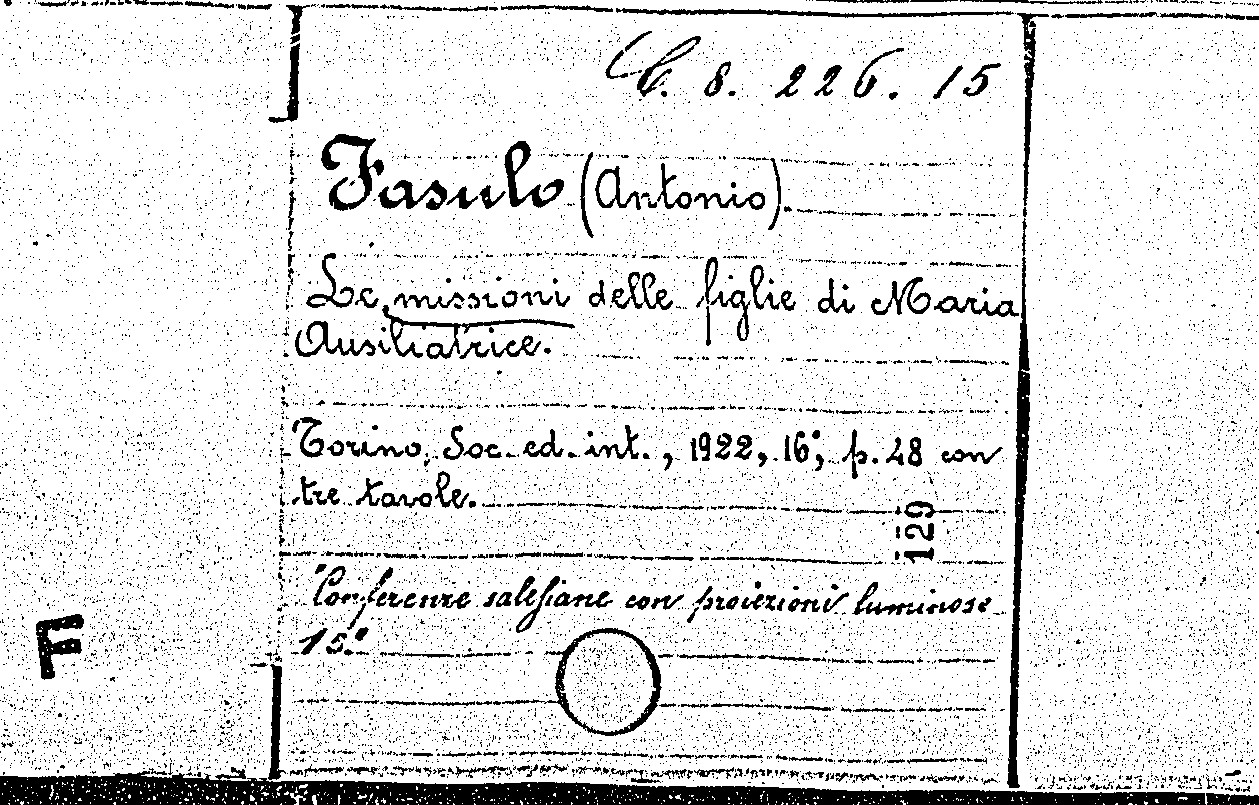 C. 8. 226. 15
Fasulo (Antonio).
Le missioni delle figlie di Maria
Ausiliatrice.
Torino, Soc. ed. int., 1922, 16°, p. 48 con
tre tavole.
129
Conferenze salesiane con proiezioni luminose
15°
F